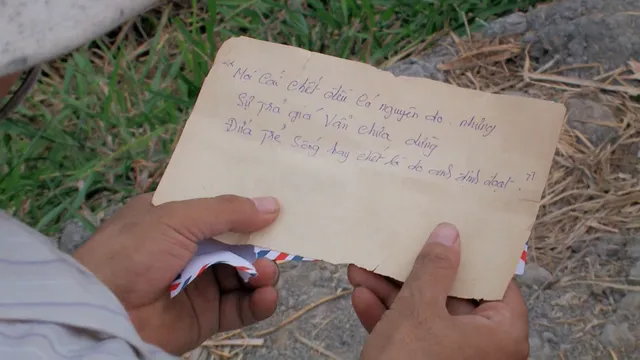 “Mỗi cái chết đều có nguyên do. nhưng
Sự trả giá vẫn chưa dừng
Đứa trẻ sống hay chết là do anh định đoạt.”